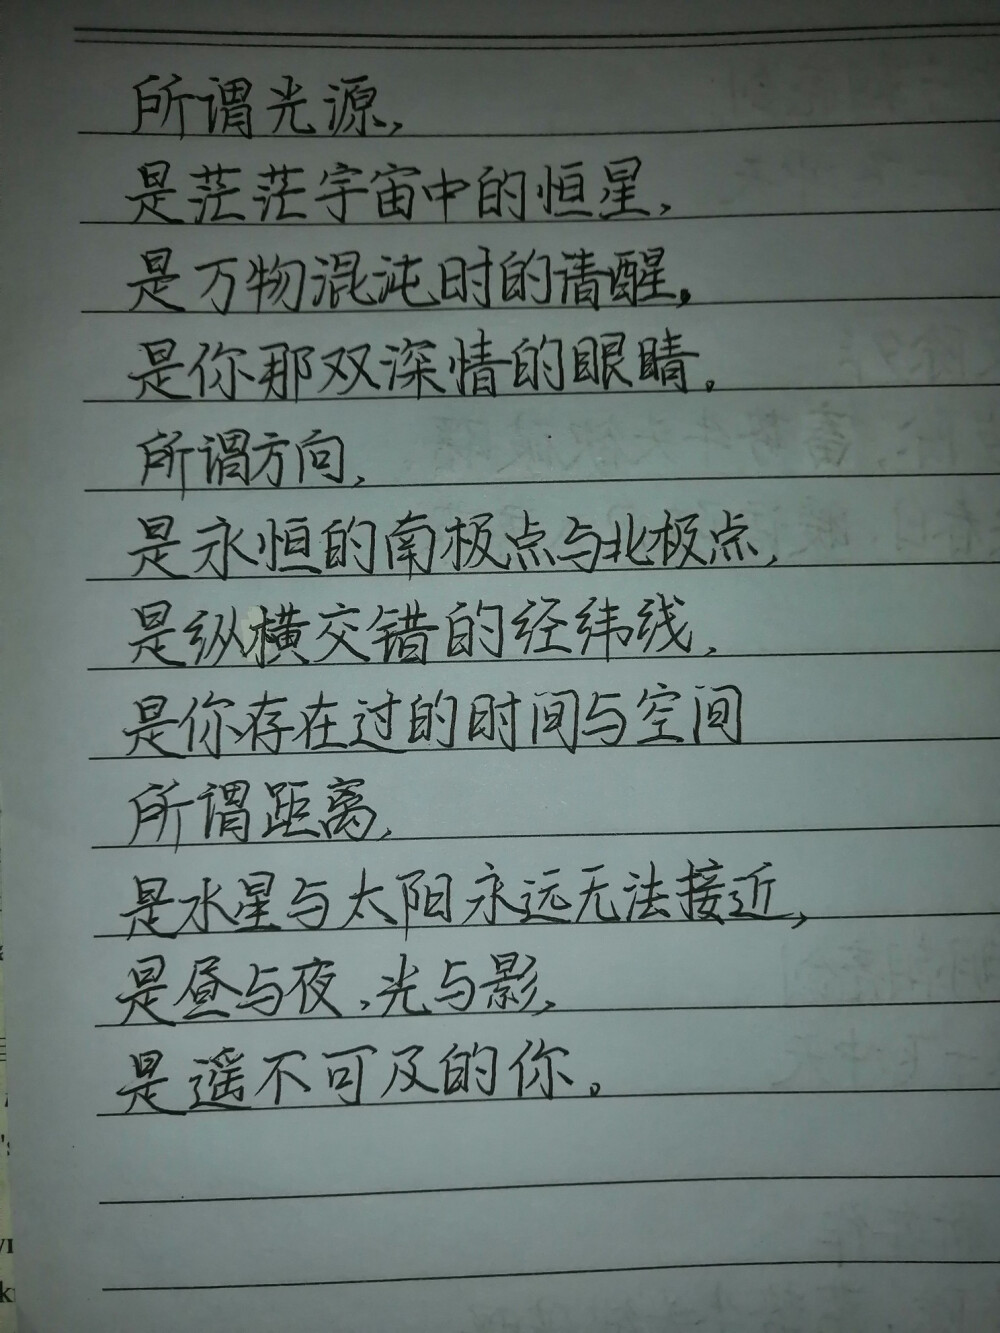 所谓光源,
是茫茫宇宙中的恒星,
是万物混沌时的清醒,
是你那双深情的眼睛。
所谓方向,
是永恒的南极点与北极点,
是纵横交错的经纬线,
是你存在过的时间与空间
所谓距离,
是水星与太阳永远无法接近,
是昼与夜,光与影,
是遥不可及的你。